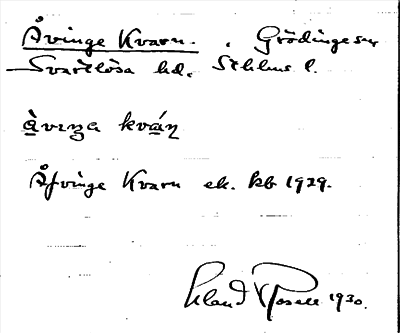 Åvinge Kvarn. Grödinge sn
Svartlösa hd. Sthlms l.
àvıŋa kváɳ
Åfvinge Kvarn ek. kb 1929.
Erland Rosell 1930.